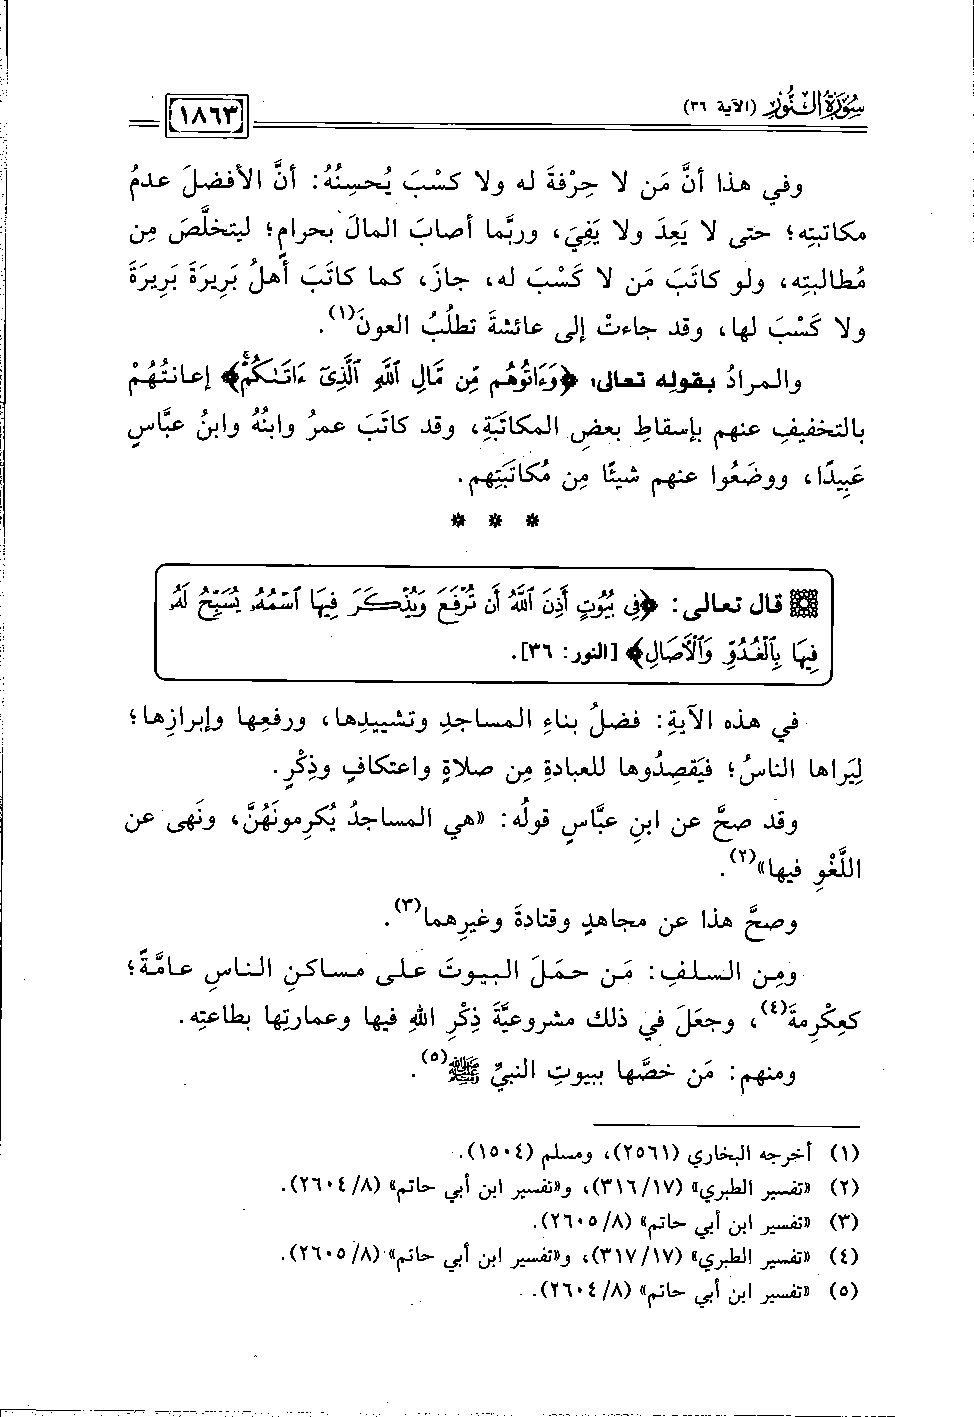 سُورَةُ النُّور (الآية ٣٦)
١٨٦٣
وفي هذا أنَّ مَن لا حِرْفةَ له ولا كسْبَ يُحسِنُهُ: أنَّ الأفضلَ عدمُ
مكاتبتِه؛ حتى لا يَعِدَ ولا يَفِيَ، وربَّما أصابَ المالَ بحرامٍ؛ ليتخلَّصَ مِن
مُطالبتِه، ولو كاتَبَ مَن لا كَسْبَ له، جازَ، كما كاتَبَ أهلُ بَرِيرَةَ بَرِيرَةَ
ولا كَسْبَ لها، وقد جاءتْ إلى عائشةَ تطلُبُ العونَ(١).
والمرادُ بقوله تعالى: ﴿وَءَاتُوهُم مِّن مَّالِ ٱللَّهِ ٱلَّذِىٓ ءَاتَىٰكُمْ﴾ إعانتُهُمْ
بالتخفيفِ عنهم بإسقاطِ بعضِ المكاتَبَةِ، وقد كاتَبَ عمرُ وابنُهُ وابنُ عبَّاسٍ
عَبِيدًا، ووضَعُوا عنهم شيئًا مِن مُكاتَبَتِهم.
* * *
قال تعالى: ﴿فِى بُيُوتٍ أَذِنَ ٱللَّهُ أَن تُرْفَعَ وَيُذْكَرَ فِيهَا ٱسْمُهُۥ يُسَبِّحُ لَهُۥ
فِيهَا بِٱلْغُدُوِّ وَٱلْآصَالِ﴾ [النور: ٣٦].
في هذه الآيةِ: فضلُ بناءِ المساجدِ وتشييدِها، ورفعِها وإبرازِها؛
لِيَراها الناسُ؛ فيَقصِدُوها للعبادةِ مِن صلاةٍ واعتكافٍ وذِكْرٍ.
وقد صحَّ عن ابنِ عبَّاسٍ قولُه: «هي المساجدُ يُكرِمونَهُنَّ، ونَهى عن
اللَّغْوِ فيها»(٢).
وصحَّ هذا عن مجاهدٍ وقتادةَ وغيرِهما(٣).
ومِن السلفِ: مَن حمَلَ البيوتَ على مساكنِ الناسِ عامَّةً؛
كعِكْرِمةَ(٤)، وجعَلَ في ذلك مشروعيَّةَ ذِكْرِ اللهِ فيها وعمارتِها بطاعتِه.
ومنهم: مَن خصَّها ببيوتِ النبيِّ ﷺ(٥).
(١) أخرجه البخاري (٢٥٦١)، ومسلم (١٥٠٤).
(٢) «تفسير الطبري» (١٧/ ٣١٦)، و«تفسير ابن أبي حاتم» (٨/ ٢٦٠٤).
(٣) «تفسير ابن أبي حاتم» (٨/ ٢٦٠٥).
(٤) «تفسير الطبري» (١٧/ ٣١٧)، و«تفسير ابن أبي حاتم» (٨/ ٢٦٠٥).
(٥) «تفسير ابن أبي حاتم» (٨/ ٢٦٠٤).